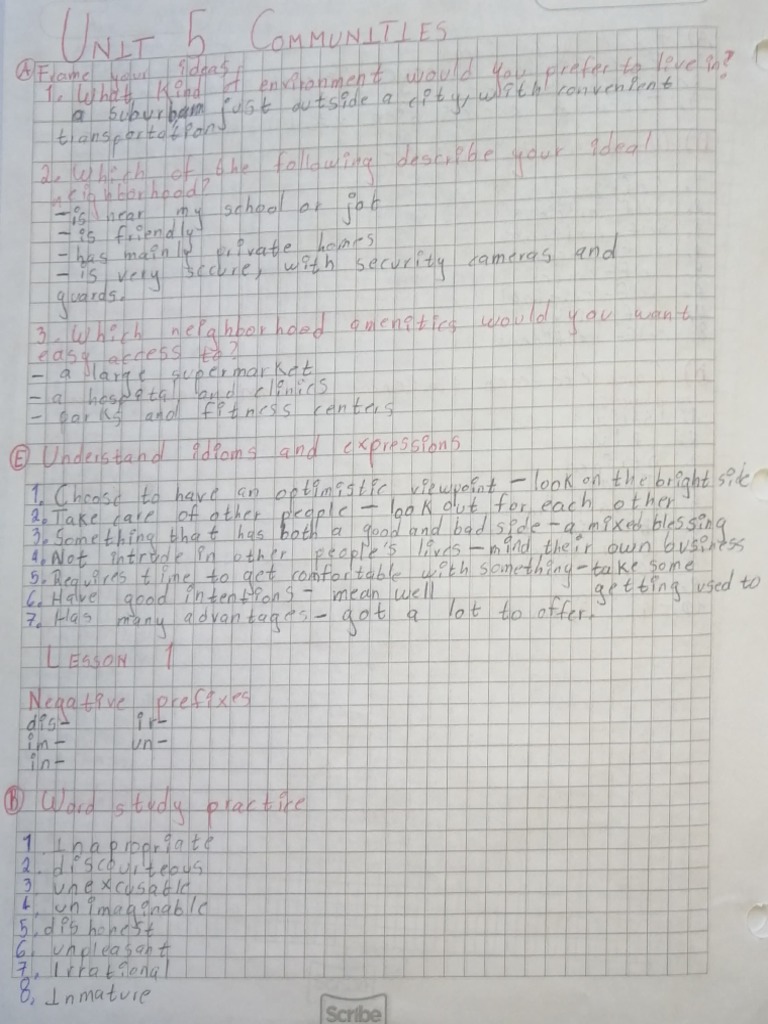 UNIT 5 COMMUNITIES
A Frame your ideas
1. What kind of environment would you prefer to live in?
a suburban just outside a city, with convenient
transportation
2. Which of the following describe your ideal
neighborhood?
- is near my school or job
- is friendly
- has mainly private homes
- is very secure, with security cameras and
guards.
3. Which neighborhood amenities would you want
easy access to?
- a large supermarket
- a hospital and clinics
- parks and fitness centers
E Understand idioms and expressions
1. Choose to have an optimistic viewpoint - look on the bright side
2. Take care of other people - look out for each other
3. Something that has both a good and bad side - a mixed blessing
4. Not intrude in other people's lives - mind their own business
5. Requires time to get comfortable with something - take some
getting used to
6. Have good intentions - mean well
7. Has many advantages - got a lot to offer.
LESSON 1
Negative prefixes
dis- ir-
im- un-
in-
B Word study practice
1. Inapropriate
2. discourteous
3 unexcusable
4. unimaginable
5. dishonest
6. unpleasant
7. Irrational
8. Inmature
Scribe